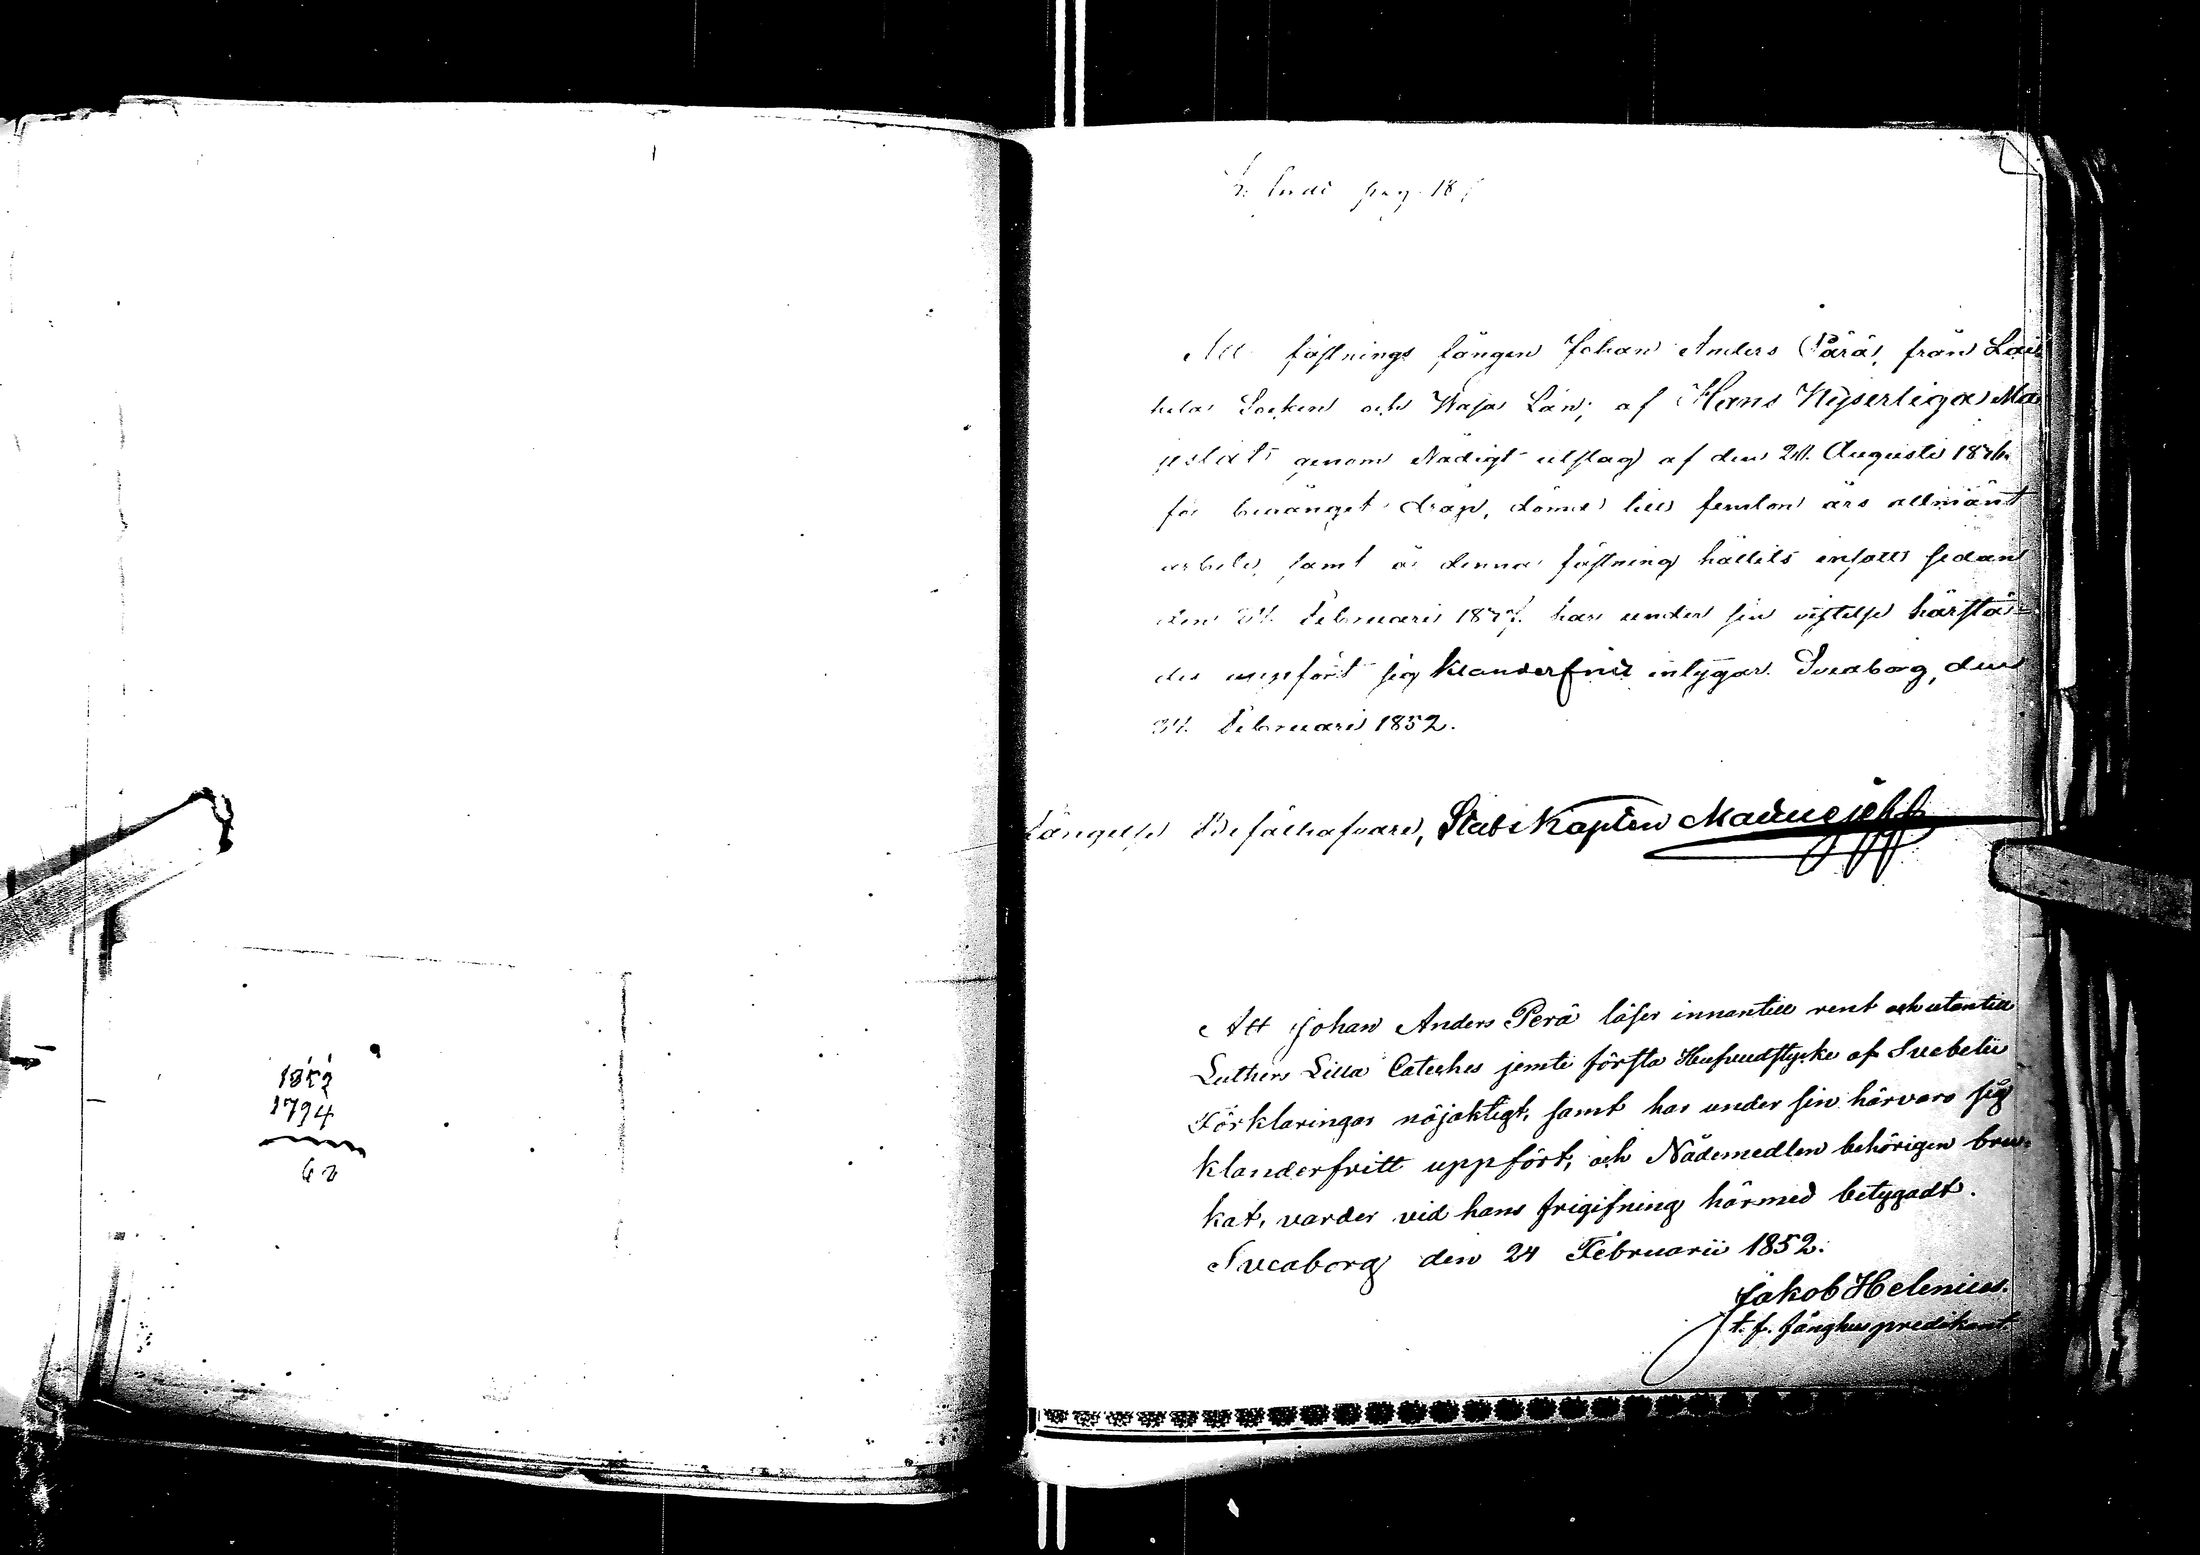 1852
1794
pag. 18
Att fästnings fången Johan Anders Pärä, från Lai
hela Socken och Wasa Län; af Hans Kejserliga Ma
jestäts genom Nådigt utslag af den Augusti
för dråp, dömd till femton års allmänt
arbete, samt å denna fästning hållits insatt sedan
den Februari har under sin vistelse härstä=
des uppfört sig klanderfritt intygar. Sveaborg, den
24. Februari 1852.
Fängelse Befälhafvare, Stabskapten
Att Johan Anders Perä läser innantill rent och utantill
Luthers Lilla Cateches jemte första Hufvudstycke af Svebelii
Förklaringar nöjaktigt, samt har under sin härvaro sig
klanderfritt uppfört, och Nådemedlen behörigen bru-
kat, varder vid hans frigifning härmed betygadt.
Sveaborg den 24 Februarii 1852.
Jakob Helenius.
t. f. fånghuspredikant.